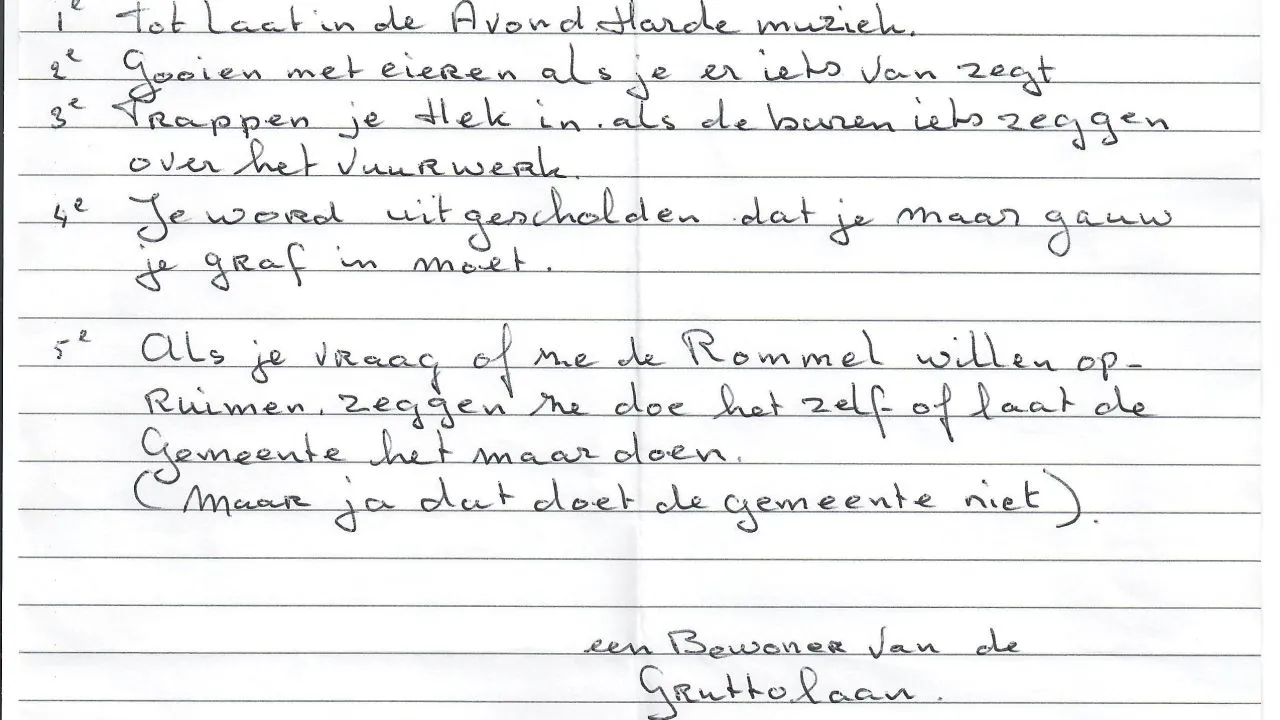 1e Tot Laat in de Avond Harde muziek.
2e Gooien met eieren als je er iets van zegt
3e Trappen je Hek in. als de buren iets zeggen
over het vuurwerk.
4e Je word uitgescholden dat je maar gauw
je graf in moet.
5e Als je vraag of ze de Rommel willen op-
Ruimen. zeggen ze doe het zelf of laat de
Gemeente het maar doen.
(Maar ja dat doet de gemeente niet).
een Bewoner van de
Gruttolaan.